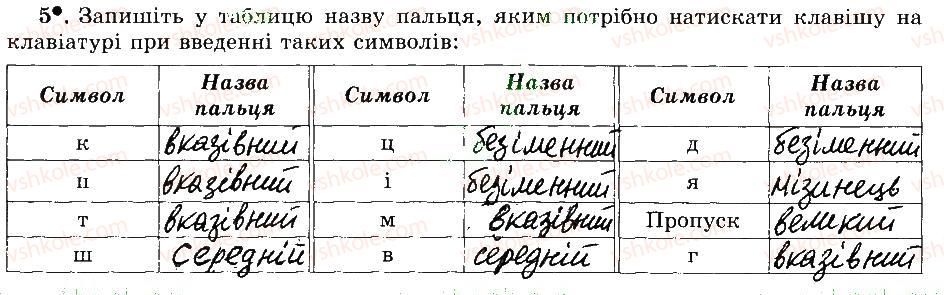 5•. Запишіть у таблицю назву пальця, яким потрібно натискати клавішу на
клавіатурі при введенні таких символів:
Символ Назва пальця Символ Назва пальця Символ Назва пальця
к вказівний ц безіменний д безіменний
п вказівний і безіменний я мізинець
т вказівний м вказівний Пропуск великий
ш середній в середній г вказівний